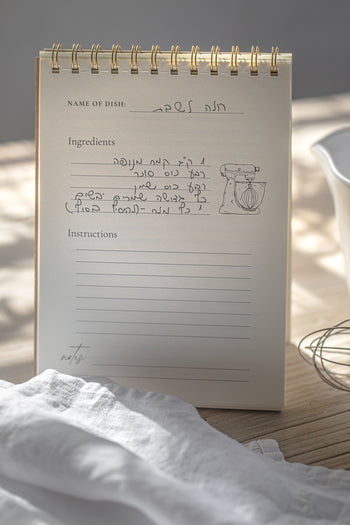 NAME OF DISH: חלה לשבת
Ingredients
1 ק"ג קמח מנופה
רבע כוס סוכר
רבע כוס שמן
כף גדושה שמרים יבשים
1 כף מלח - (להוסיף בסוף)
Instructions
notes